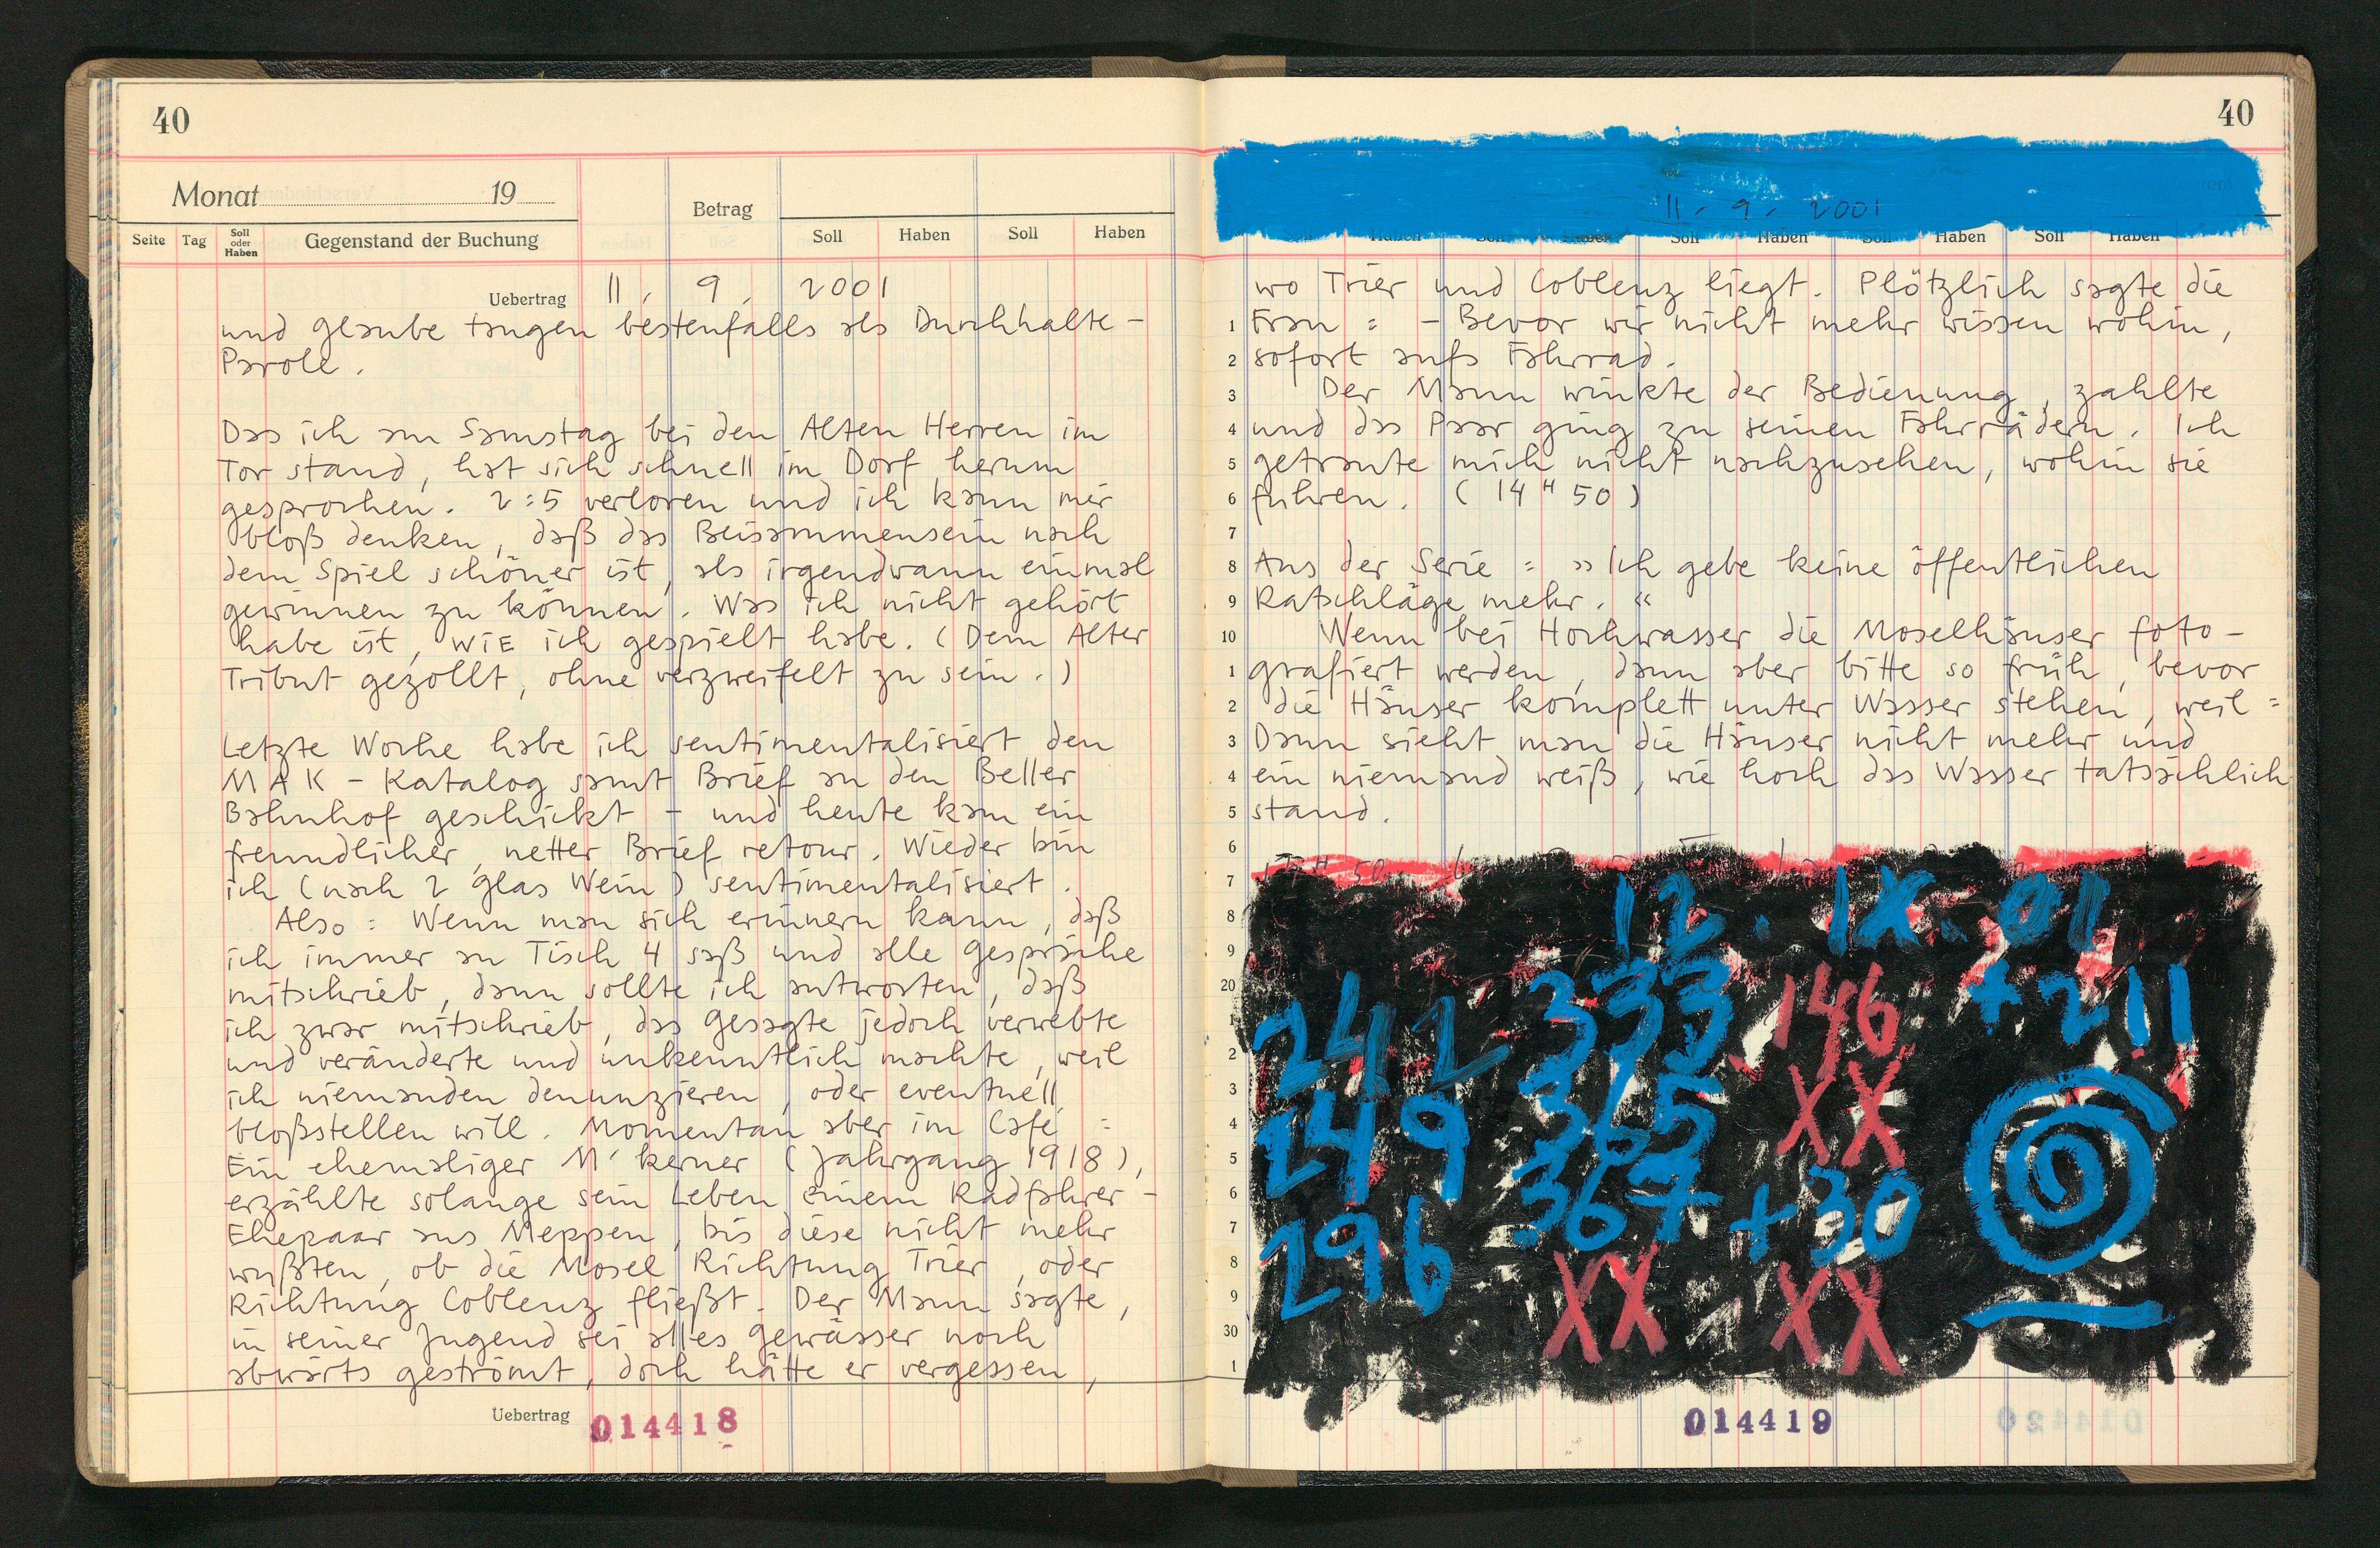 40
Monat 19
Betrag
Seite Tag Soll oder Haben Gegenstand der Buchung Soll Haben Soll Haben
Uebertrag 11. 9. 2001
und glaube taugen bestenfalls als Durchhalte-
Parole.
Das ich am Samstag bei den Alten Herren im
Tor stand, hat sich schnell im Dorf herum
gesprochen. 2:5 verloren und ich kann mir
bloß denken, daß das Beisammensein nach
dem Spiel schöner ist, als irgendwann einmal
gewinnen zu können. Was ich nicht gehört
habe ist, WIE ich gespielt habe. (Dem Alter
Tribut gezollt, ohne verzweifelt zu sein.)
Letzte Woche habe ich sentimentalisiert den
MAK-Katalog samt Brief an den Beller
Bahnhof geschickt - und heute kam ein
freundlicher, netter Brief retour. Wieder bin
ich (nach 2 Glas Wein) sentimentalisiert.
Also: Wenn man sich erinnern kann, daß
ich immer an Tisch 4 saß und alle Gespräche
mitschrieb, dann sollte ich antworten, daß
ich zwar mitschrieb, das Gesagte jedoch verwebte
und veränderte und unkenntlich machte, weil
ich niemanden denunzieren, oder eventuell
bloßstellen will. Momentan aber im Café:
Ein ehemaliger M'kerner (Jahrgang 1918),
erzählte solange sein Leben einem Radfahrer-
Ehepaar aus Meppen, bis diese nicht mehr
wußten, ob die Mosel Richtung Trier, oder
Richtung Coblenz fließt. Der Mann sagte,
in seiner Jugend sei alles Gewässer noch
abwärts geströmt, doch hätte er vergessen,
Uebertrag 014418
40
11. 9. 2001
Soll Haben Soll Haben Soll Haben Soll Haben Soll Haben
wo Trier und Coblenz liegt. Plötzlich sagte die
1 Frau: - Bevor wir nicht mehr wissen wohin,
2 sofort aufs Fahrrad.
3 Der Mann winkte der Bedienung, zahlte
4 und das Paar ging zu seinen Fahrrädern. Ich
5 getraute mich nicht nachzusehen, wohin sie
6 fuhren. (14 H 50)
7
8 Aus der Serie: »Ich gebe keine öffentlichen
9 Ratschläge mehr.«
10 Wenn bei Hochwasser die Moselhäuser foto-
1 grafiert werden, dann aber bitte so früh, bevor
2 die Häuser komplett unter Wasser stehen, weil:
3 Dann sieht man die Häuser nicht mehr und
4 ein niemand weiß, wie hoch das Wasser tatsächlich
5 stand.
6
7
8 12. IX. 01
9
20 242 333 146 +211
1
2
3 XX
4 249 365
5
6
7 296 367 +30
8
9 XX XX
30
1
014419